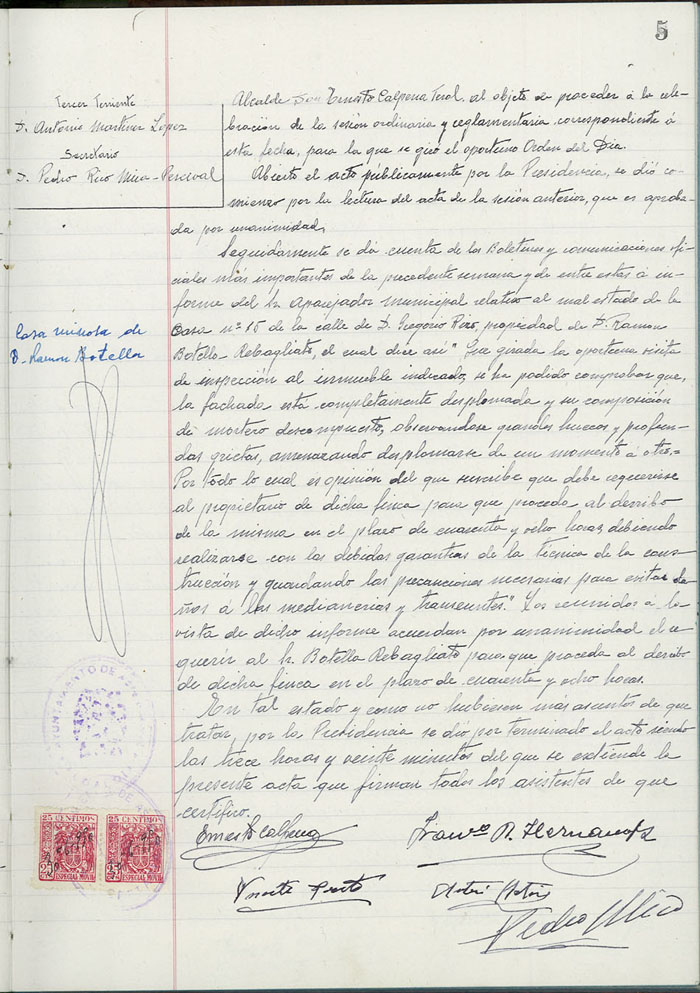 5
Tercer Teniente
D. Antonio Martinez López
Secretario
D. Pedro Rico Mira-Perceval
Alcalde Don Ernesto Calpena Terol, al objeto de proceder á la cele-
bración de la sesión ordinaria y reglamentaria correspondiente á
esta fecha, para la que se giró el oportuno Orden del Dia.
Abierto el acto públicamente por la Presidencia, se dió co-
mienzo por la lectura del acta de la sesión anterior, que es aproba-
da por unanimidad.
Seguidamente se dá cuenta de los Boletines y comunicaciones ofi-
ciales más importantes de la precedente semana y de entre estas á in-
forme del Sr. Aparejador municipal relativo al mal estado de la
Casa nº 15 de la calle de D. Gregorio Rizo, propiedad de D. Ramon
Botella Rebagliato, el cual dice así "Que girada la oportuna visita
de inspección al inmueble indicado, se ha podido comprobar que,
la fachada está completamente desplomada y su composición
de mortero descompuesto, observandose grandes huecos y profun-
das grietas, amenazando desplomarse de un momento á otro.=
Por todo lo cual es opinión del que suscribe que debe requerirse
al propietario de dicha finca para que proceda al derribo
de la misma en el plazo de cuarenta y ocho horas, debiendo
realizarse con las debidas garantias de la técnica de la cons-
trucción y guardando las precauciones necesarias para evitar da-
ños a los medianerios y transeuntes." Los reunidos á la
vista de dicho informe acuerdan por unanimidad el re-
querir al Sr. Botella Rebagliato para que proceda al derribo
de dicha finca en el plazo de cuarenta y ocho horas.
En tal estado y como no hubiesen más asuntos de que
tratar, por la Presidencia se dió por terminado el acto siendo
las trece horas y veinte minutos del que se extiende la
presente acta que firman todos los asistentes de que
certifico.
Casa ruinosa de
D. Ramon Botella
AYUNTAMIENTO DE ASPE
25 CENTIMOS
ESPECIAL MOVIL
25 CENTIMOS
ESPECIAL MOVIL
Ernesto Calpena
Franco R. Hernandez
Vicente Prieto
Pedro Rico